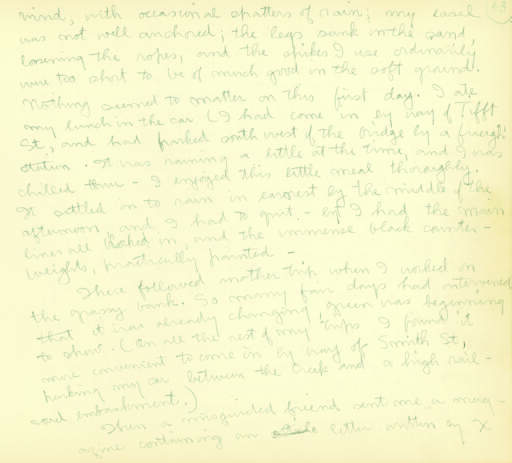 23
wind, with occasional spatters of rain; my easel
was not well anchored; the legs sank in the sand
loosening the ropes, and the spikes I use ordinarily
were too short to be of much good in the soft ground.
Nothing seemed to matter on this first day. I ate
my lunch in the car (I had come in by way of Tifft
St, and had parked southwest of the bridge by a freight
station. It was raining a little at the time, and I was
chilled thru - I enjoyed this little meal thoroughly.
It settled in to rain in earnest by the middle of the
afternoon, and I had to quit, - but I had the main
lines all in, and the immense black counter-
weights, practically painted -
There followed another trip when I worked on
the grassy bank. So many fair days had intervened
that it was already changing green was beginning
to show. (On all the rest of my trips I found it
more convenient to come in by way of Smith St,
parking my car between the creek and a high rail-
road embankment.)
Then a misguided friend sent me a mag-
azine containing an letter written by